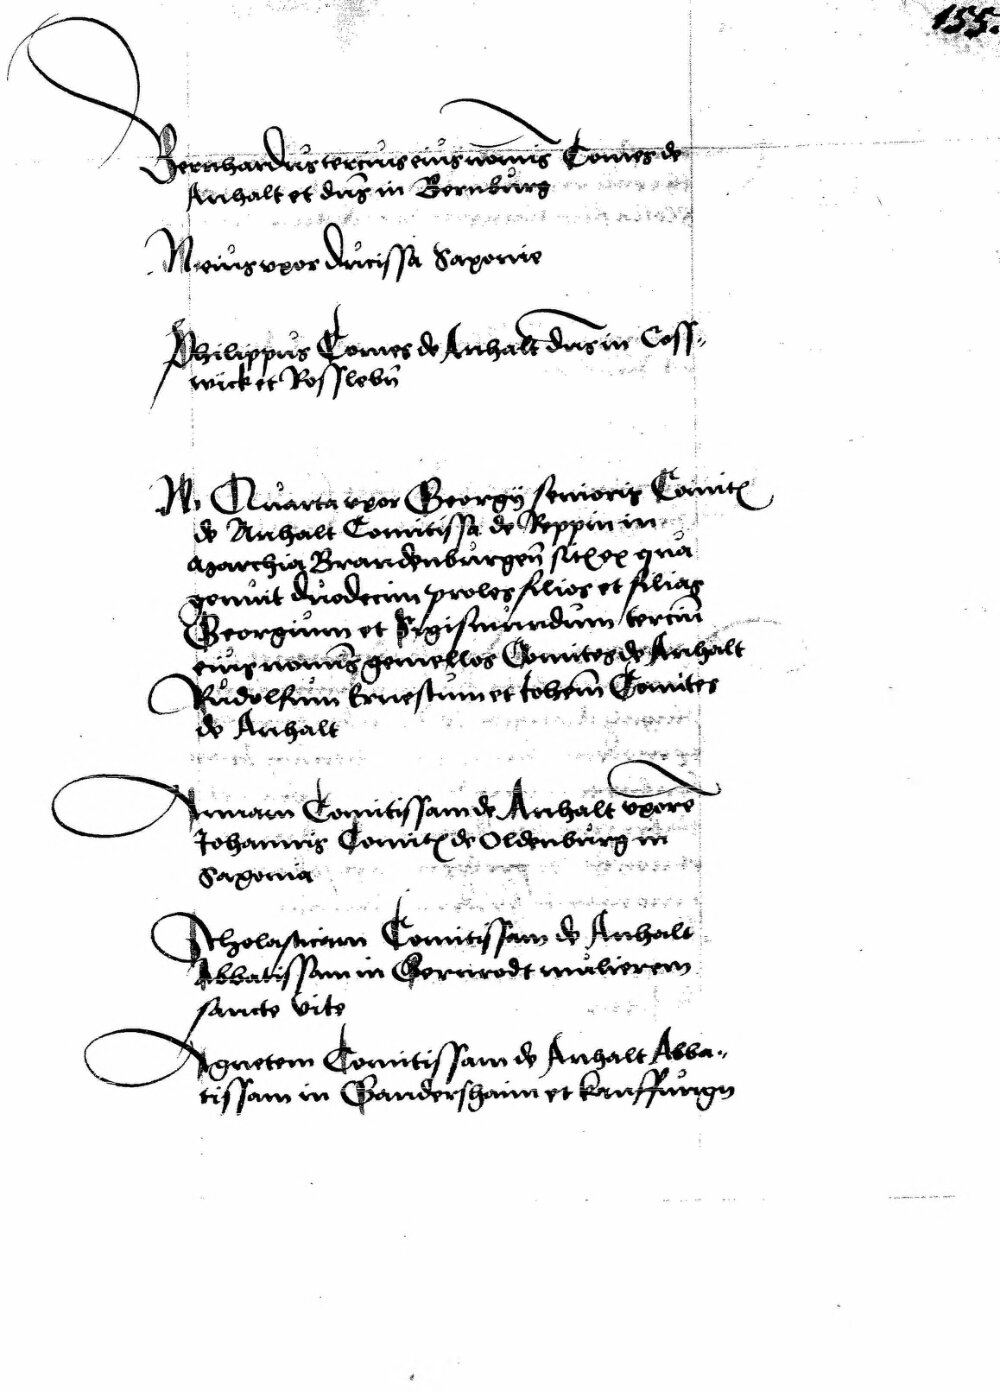 155.
Bernhardus tercius eius nomīs Comes de
Anhalt et dns̄ in Bernburg
N eius vxor Ducissa Saxonie
Philippus Comes de Anhalt dns̄ in Coss-
wick et Rosslebn̄
N Quarta vxor Georgij senioris Comit͛
de Anhalt Comitissa de Reppin in
Marchia Brandenburgen̄ ex qua
genuit duodecim proles filios et filias
Georgium et Sigismundum terciū
eius nomīs gemellos Comites de Anhalt
Rudolfum Ernestum et Johem̄ Comites
de Anhalt
Annam Comitissam de Anhalt vxorē
Johannis Comit͛ de Oldenburg in
Saxonia
Scholasticam Comitissam de Anhalt
Abbatissam in Gernrodt mulierem
sancte vite
Agnetem Comitissam de Anhalt Abba-
tissam in Gandershaim et kauffungn